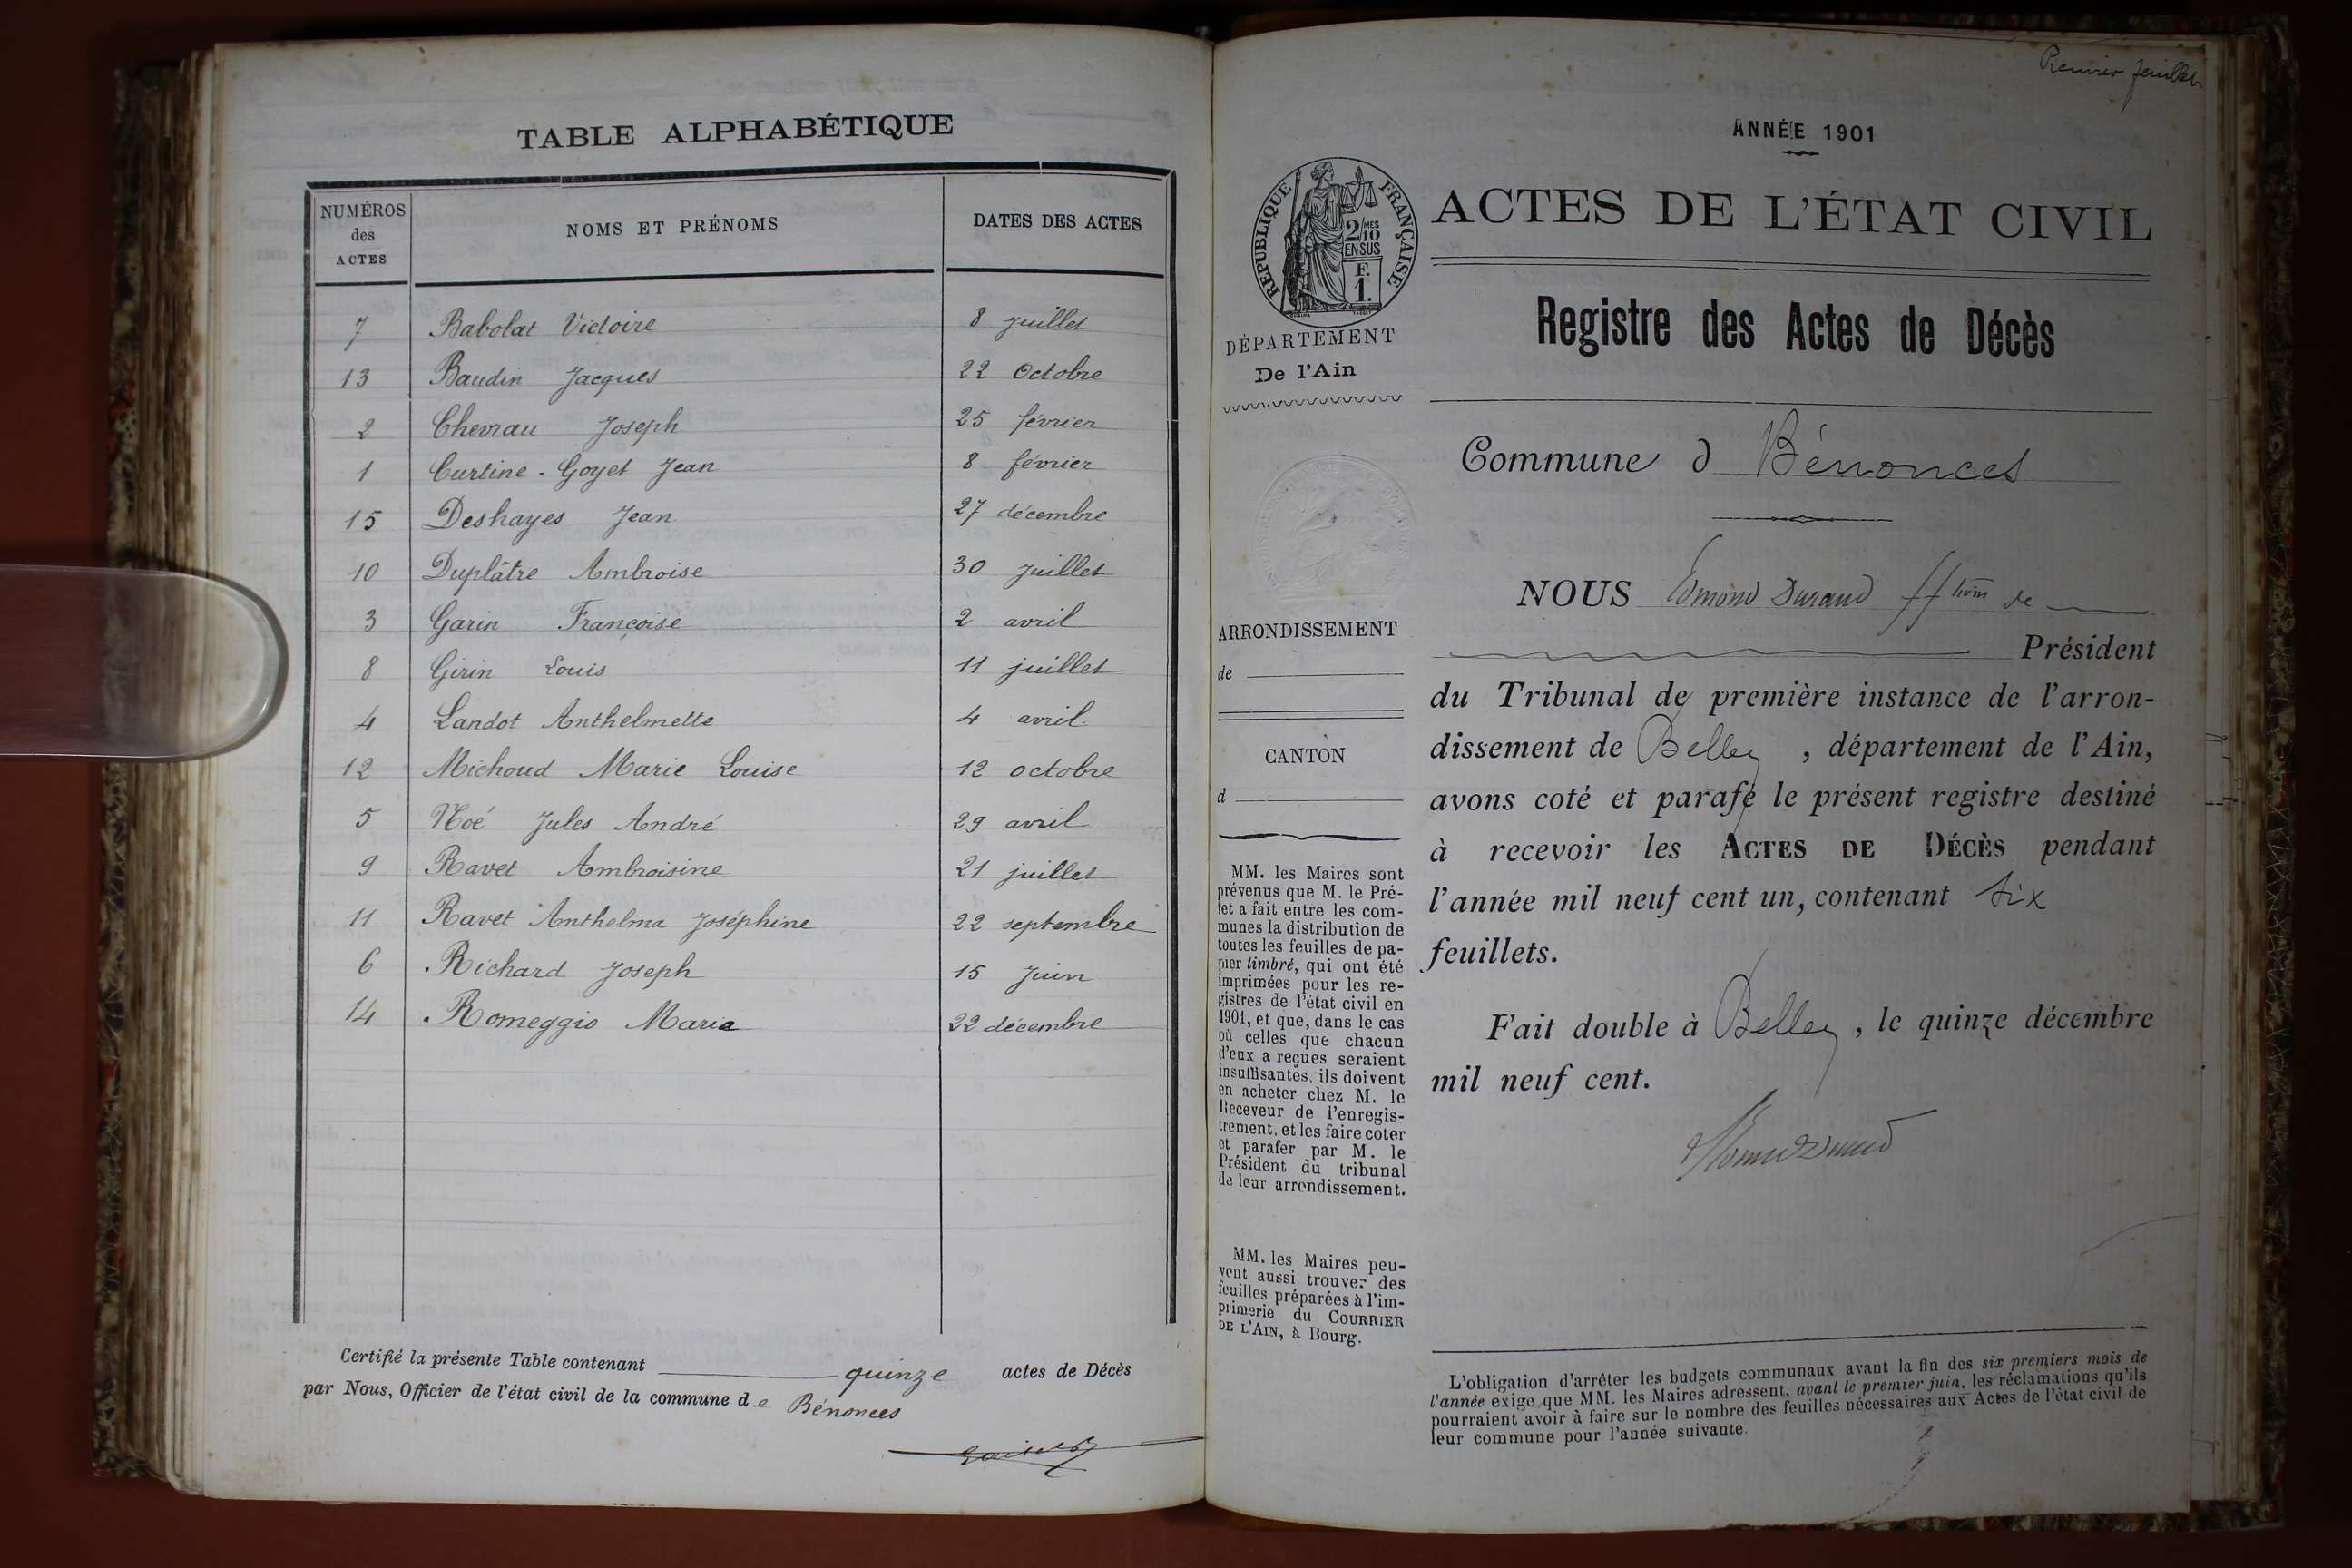 TABLE ALPHABÉTIQUE
NUMÉROS des ACTES NOMS ET PRÉNOMS DATES DES ACTES
7 Babolat Victoire 8 juillet
13 Baudin Jacques 22 Octobre
2 Chevrau Joseph 25 février
1 Curtine-Goyet Jean 8 février
15 Deshayes Jean 27 décembre
10 Duplâtre Ambroise 30 juillet
3 Garin Françoise 2 avril
8 Girin Louis 11 juillet
4 Landot Anthelmette 4 avril.
12 Michoud Marie Louise 12 octobre
5 Noé Jules André 29 avril
9 Ravet Ambroisine 21 juillet
11 Ravet Anthelma Joséphine 22 septembre
6 Richard Joseph 15 Juin
14 Romeggio Maria 22 décembre
Certifié la présente Table contenant quinze actes de Décès
par Nous, Officier de l'état civil de la commune de Bénonces
Premier feuillet
ANNÉE 1901
RÉPUBLIQUE FRANÇAISE
2/10 MES
EN SUS
F.
1.
DÉPARTEMENT
De l'Ain
ARRONDISSEMENT
de
CANTON
d
MM. les Maires sont
prévenus que M. le Pré-
fet a fait entre les com-
munes la distribution de
toutes les feuilles de pa-
pier timbré, qui ont été
imprimées pour les re-
gistres de l'état civil en
1901, et que, dans le cas
où celles que chacun
d'eux a reçues seraient
insuffisantes, ils doivent
en acheter chez M. le
Receveur de l'enregis-
trement, et les faire coter
et parafer par M. le
Président du tribunal
de leur arrondissement.
MM. les Maires peu-
vent aussi trouver des
feuilles préparées à l'im-
primerie du COURRIER
DE L'AIN, à Bourg.
ACTES DE L'ÉTAT CIVIL
Registre des Actes de Décès
Commune d Bénonces
NOUS Edmond Durand ff tions de
Président
du Tribunal de première instance de l'arron-
dissement de Belley, département de l'Ain,
avons coté et parafé le présent registre destiné
à recevoir les ACTES DE DÉCÈS pendant
l'année mil neuf cent un, contenant six
feuillets.
Fait double à Belley, le quinze décembre
mil neuf cent.
L'obligation d'arrêter les budgets communaux avant la fin des six premiers mois de
l'année exige que MM. les Maires adressent, avant le premier juin, les réclamations qu'ils
pourraient avoir à faire sur le nombre des feuilles nécessaires aux Actes de l'état civil de
leur commune pour l'année suivante.